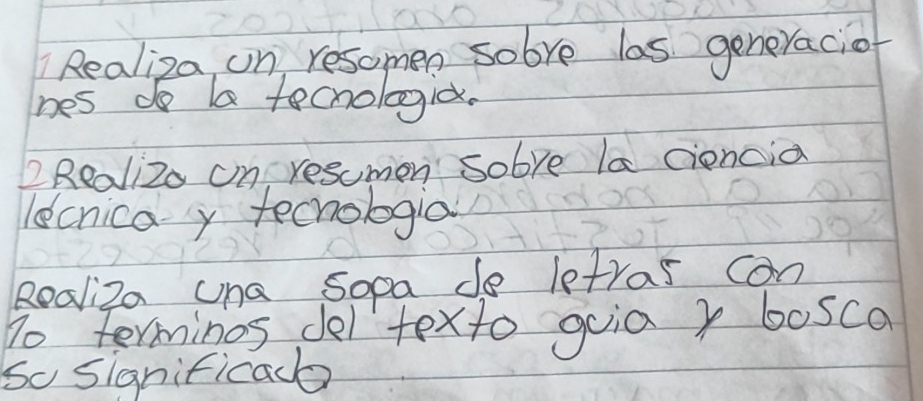 1 Realiza un resumen sobre las generacio-
nes de la tecnologia.
2 Realiza un resumen sobre la ciencia
técnica y tecnologia
Realiza una sopa de letras con
10 terminos del texto guia y busca
su significado